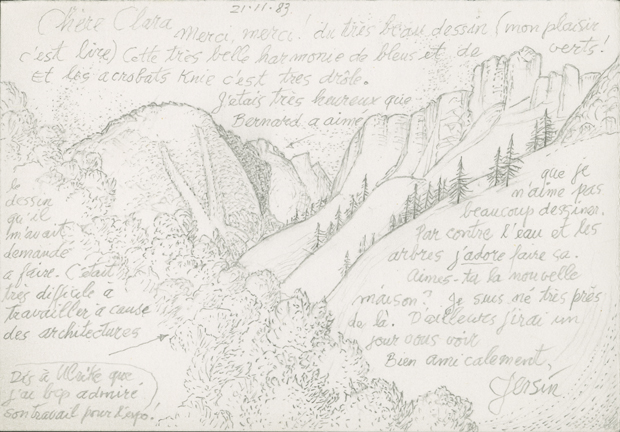 21.11.83
Chère Clara
Merci, merci! du très beau dessin (mon plaisir
c'est lire) Cette très belle harmonie de bleus et de verts!
Et les acrobats Knie c'est très drôle.
J'étais très heureux que
Bernard a aimé
le
dessin
qu'il
m'avait
demandé
a faire. C'était
très difficile à
travailler à cause
des architectures
que je
n'aime pas
beaucoup dessiner.
Par contre l'eau et les
arbres j'adore faire ça.
Aimes-tu la nouvelle
maison? Je suis né très près
de là. D'ailleurs j'irai un
jour vous voir
Bien amicalement,
Dis à Ulrike que
j'ai bcp admiré
son travail pour l'expo!